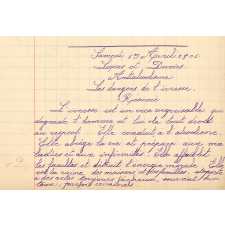 Samedi 15 Avril 1905
Leçons et Devoirs
Antialcoolisme
Les dangers de l'ivresse
Résumé
L'ivresse est un vice méprisable qui
dégrade l'homme et lui ôte tout droit
au respect. Elle conduit à l'alcoolisme.
Elle abrège la vie et prépare aux ma
ladies et aux infirmités. Elle affaiblit
les facultés et détruit l'énergie morale. Elle
est la ruine des maisons et des familles.
à des actes toujours fâcheux, souvent hon
teux, parfois criminels.